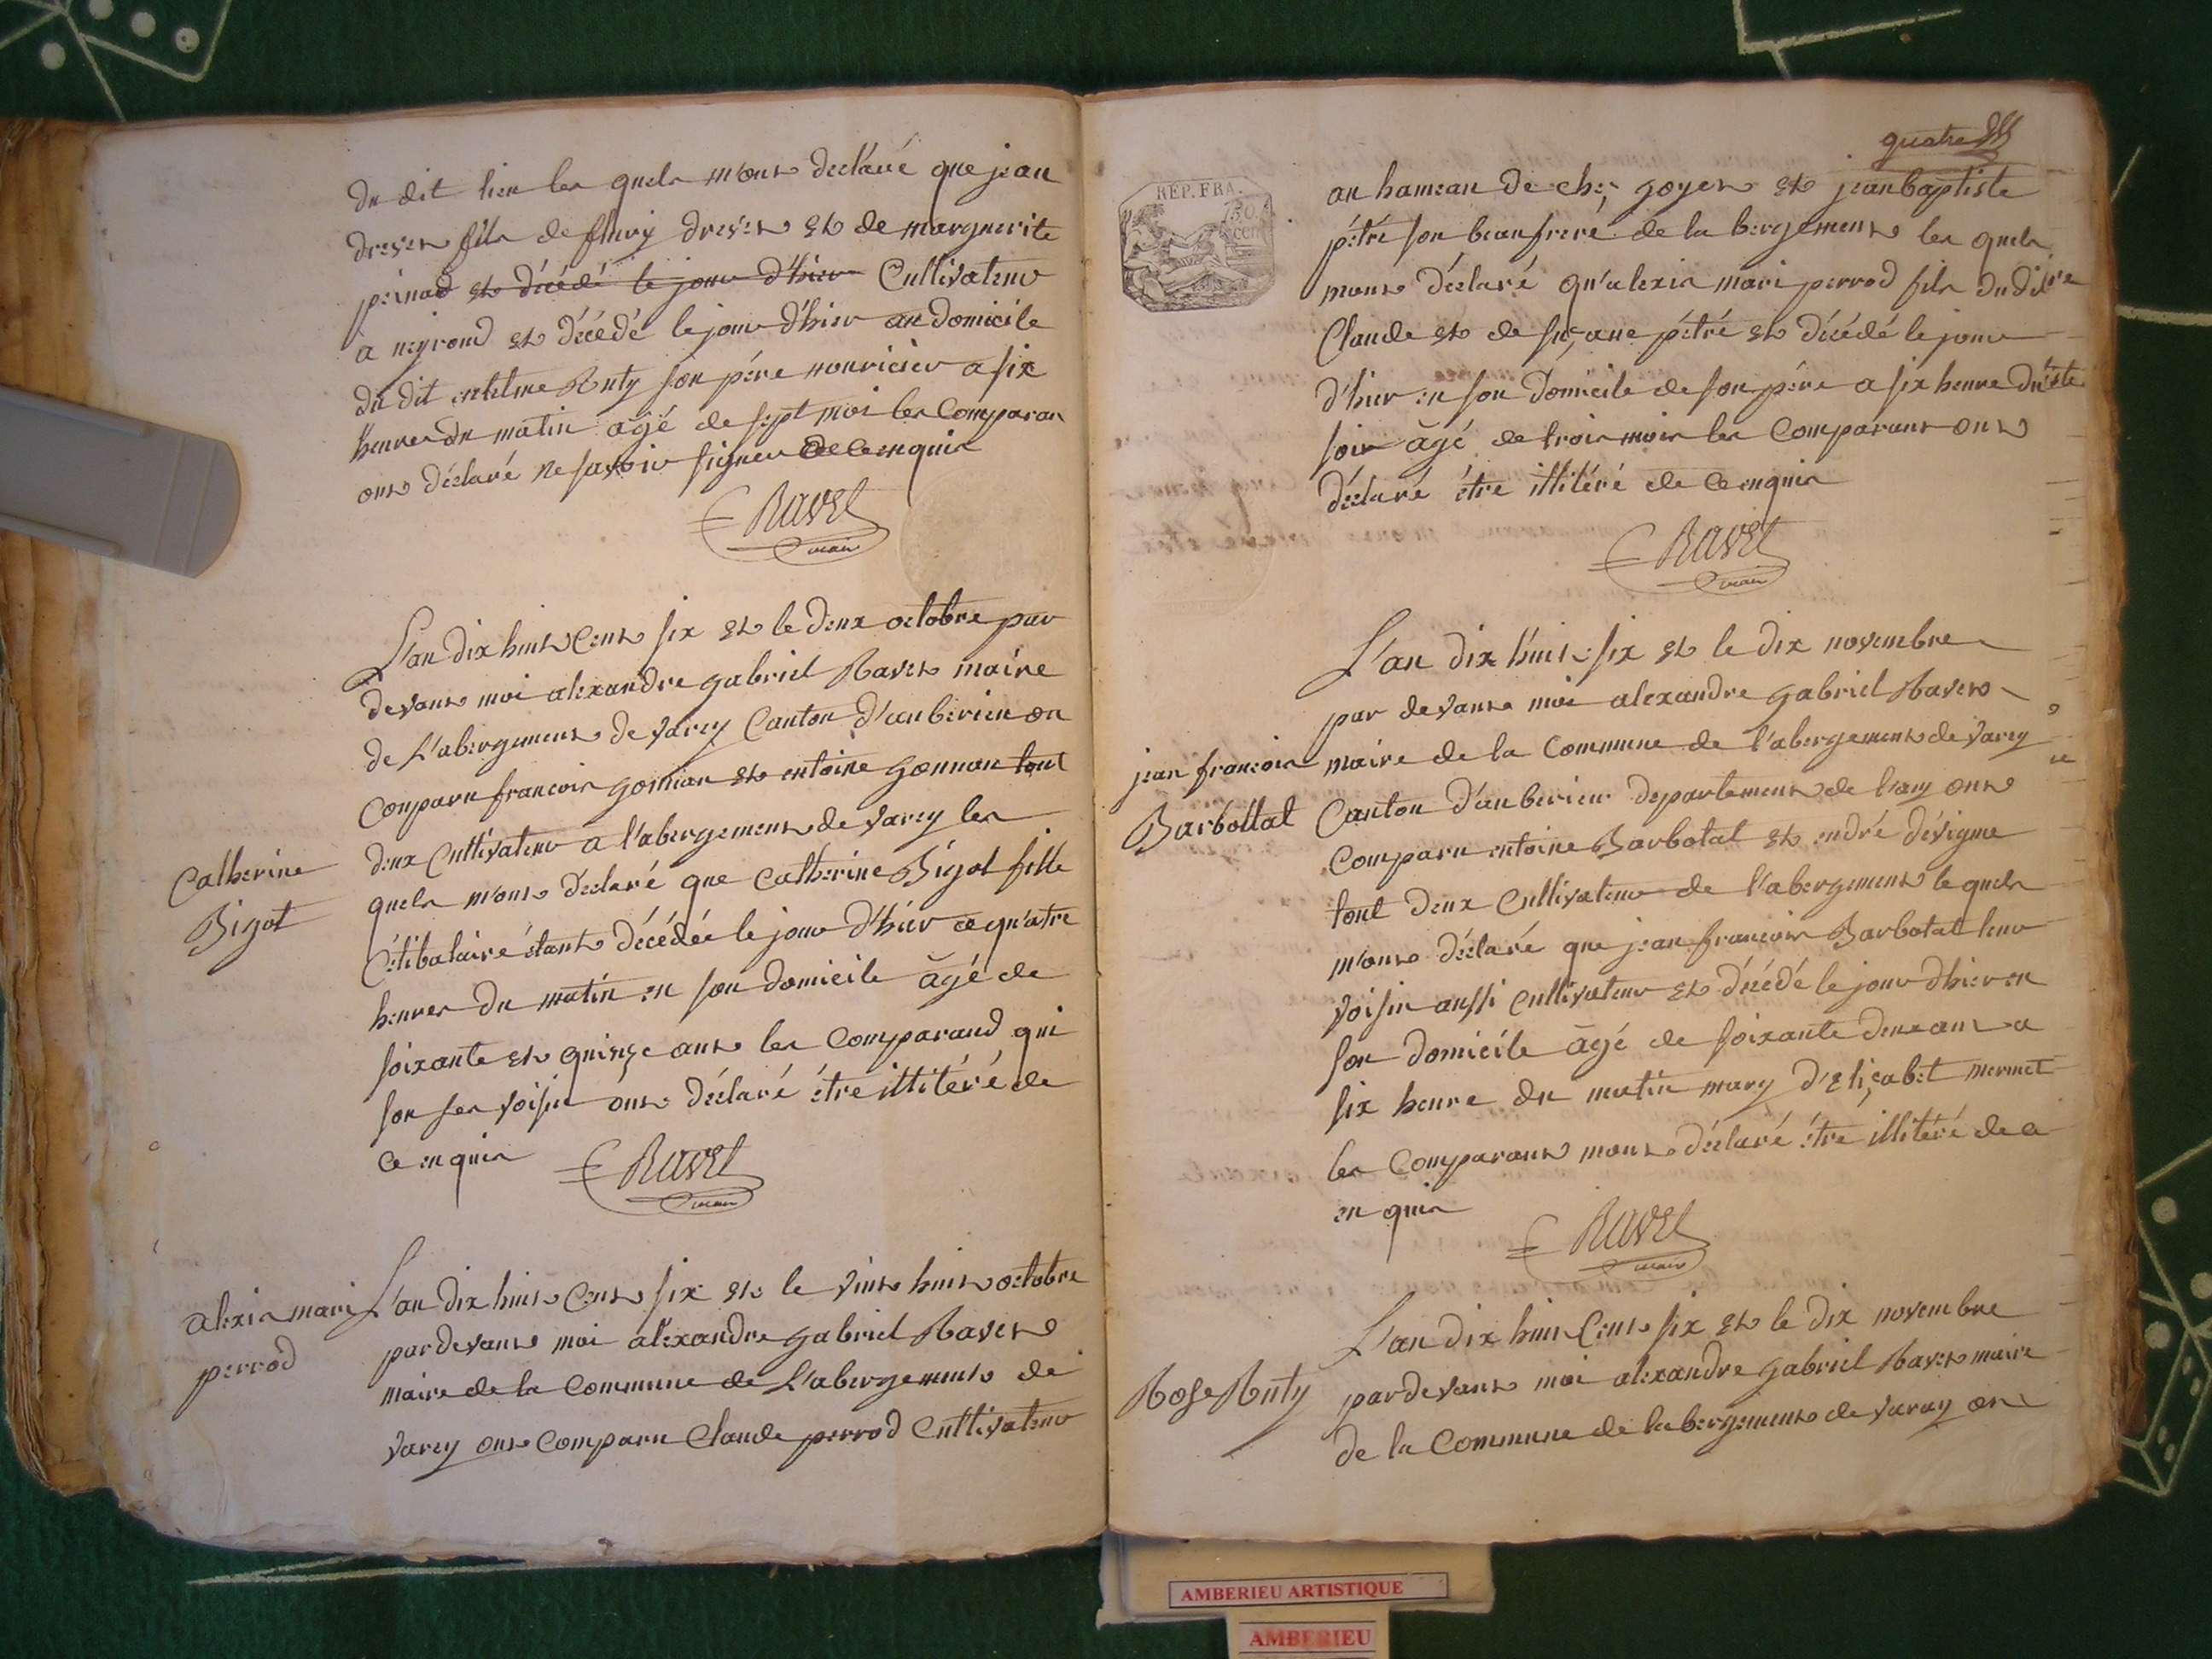 du dit lieu les quels m'ont déclaré que jean
drevet fils de fleury drevet et de marguerite
perinod est décédé le jour d'hier Cultivateur
a neyrond et décédé le jour d'hier au domicile
du dit entelme Ruty son pére nouricier a six
heures du matin agé de sept moi les Comparan
ont déclaré ne savoir signer de ce enquis
Ravet
maire
L'an dix huit Cent six et le deux octobre par
devant moi alexandre gabriel Ravet maire
de L'abergement de varey Canton d'anberieu on
Comparu francois gonnan et entoine gonnan tout
deux Cultivateur a l'abergement de varey les
quels m'ont déclaré que Catherine Bigot fille
Célibataire étant décédée le jour d'hier a quatre
heures du matin en son domicile âgé de
soixante et quinze ant les Comparand qui
son ses voisin ont déclaré étre illitéré de
ce enquis
Ravet
maire
Catherine
Bigot
alexis mari
perrod
L'an dix huit Cent six et le vint huit octobre
pardevant moi alexandre gabriel Ravet
maire de la Commune de L'abergement de
varey ont Comparu Claude perrod Cultivateur
quatre
REP. FRA.
50
cent
au hameau de chez goyet et jean baptiste
pétré son beaufreré de la bergement les quels
mont déclaré qu'alexis mari perrod fils dudit
Claude et de suzane pétré et décédé le jour
d'hier en son domicile de son pére a six heure du
soir âgé de trois mois les Comparant ont
déclaré étre illitéré de ce enquis
Ravet
maire
L'an dix huit six et le dix novembre
par devant moi alexandre gabriel Ravet
jean francois
Barbottat
maire de la Commune de l'abergement de varey
Canton d'anberieu departement de l'ain ont
Comparu entoine Barbotat et endré dévigne
tout deux Cultivateur de l'abergement le quels
m'ont déclaré que jean francois Barbotat leur
voisin aussi cultivateur et décédé le jour dhier en
son domicile âgé de soixante deux ant a
six heure du matin mary d'Elizabet mermet
les Comparant mont déclaré étre illitéré de ce
en quis
Ravet
maire
Rose Ruty
L'an dix huit Cent six et le dix novembre
pardevant moi alexandre gabriel Ravet maire
de la Commune de labergement de varay on
AMBERIEU ARTISTIQUE
AMBERIEU